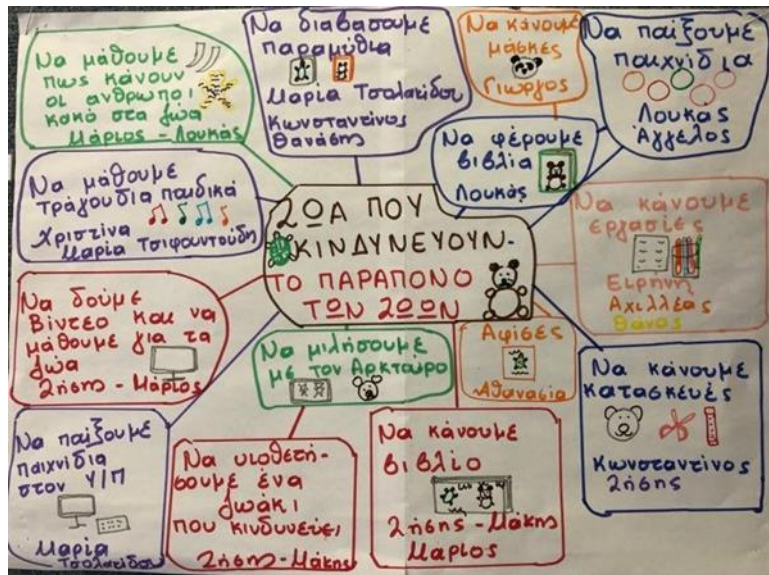 ΖΩΑ ΠΟΥ
ΚΙΝΔΥΝΕΥΟΥΝ-
ΤΟ ΠΑΡΑΠΟΝΟ
ΤΩΝ ΖΩΩΝ
Να μάθουμε
πως κάνουν
οι ανθρωποι
κακό στα ζώα
Μάριος - Λουκάς
Να διαβασουμε
παραμύθια
Μαρία Τσολακίδου
Κωνσταντίνος
Θανάσης
Να κάνουμε
μάσκες
Γιωργος
Να παίξουμε
παιχνίδια
Λουκας
Άγγελος
Να φέρουμε
βιβλία
Λουκάς
Να μάθουμε
τράγουδια παιδικά
Χριστίνα
Μαρία Τσιφουντούδη
Να κάνουμε
εργασίες
Ειρήνη
Αχιλλέας
Θάνος
Να δούμε
Βίντεο και να
μάθουμε για τα
ζώα
Ζήσης - Μάριος
Να μιλήσουμε
με τον Αρκτούρο
Αφίσες
Αθανασία
Να κάνουμε
κατασκευές
Κωνσταντίνος
Ζήσης
Να παίξουμε
παιχνίδια
στον Υ/Π
Μαρία
Τσολακίδου
Να υιοθετή-
σουμε ένα
ζωάκι
που κινδυνεύει
Ζήσης - Μάκης
Να κάνουμε
βιβλίο
Ζήσης - Μάκης
Μάριος